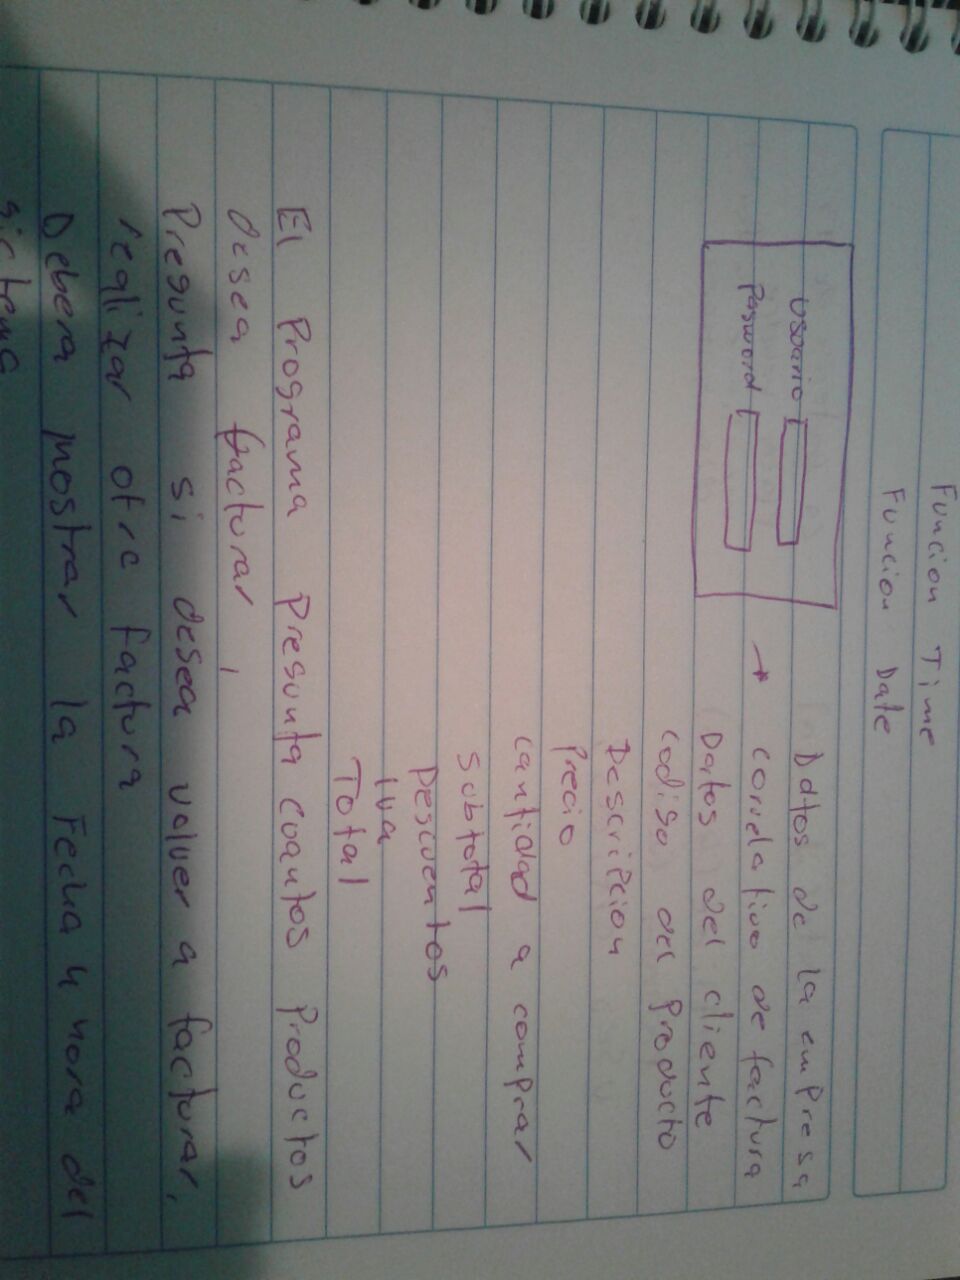 Funcion Time
Funcion Date
Usuario
Pasword
Datos de la empresa
→ correlativo de factura
Datos del cliente
codigo del producto
Descripcion
Precio
cantidad a comprar
subtotal
Descuentos
Iva
Total
El Programa Presunta cuantos Productos
desea facturar,
Presunta si desea volver a facturar,
realizar otra factura
Debera mostrar la Fecha y hora del
sistema